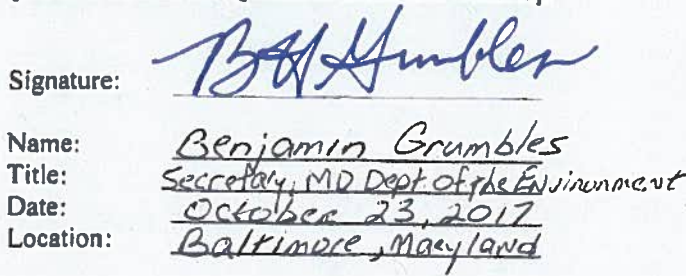 Signature: BH Grumbles
Name: Benjamin Grumbles
Title: Secretary, MD Dept. of the Environment
Date: October 23, 2017
Location: Baltimore, Maryland